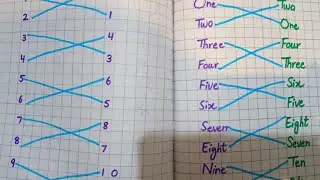 2 1
3 4
4 3
5 6
6 5
7 8
8 7
9 10
One Two
Two One
Three Four
Four Three
Five Six
Six Five
Seven Eight
Eight Seven
Nine Ten